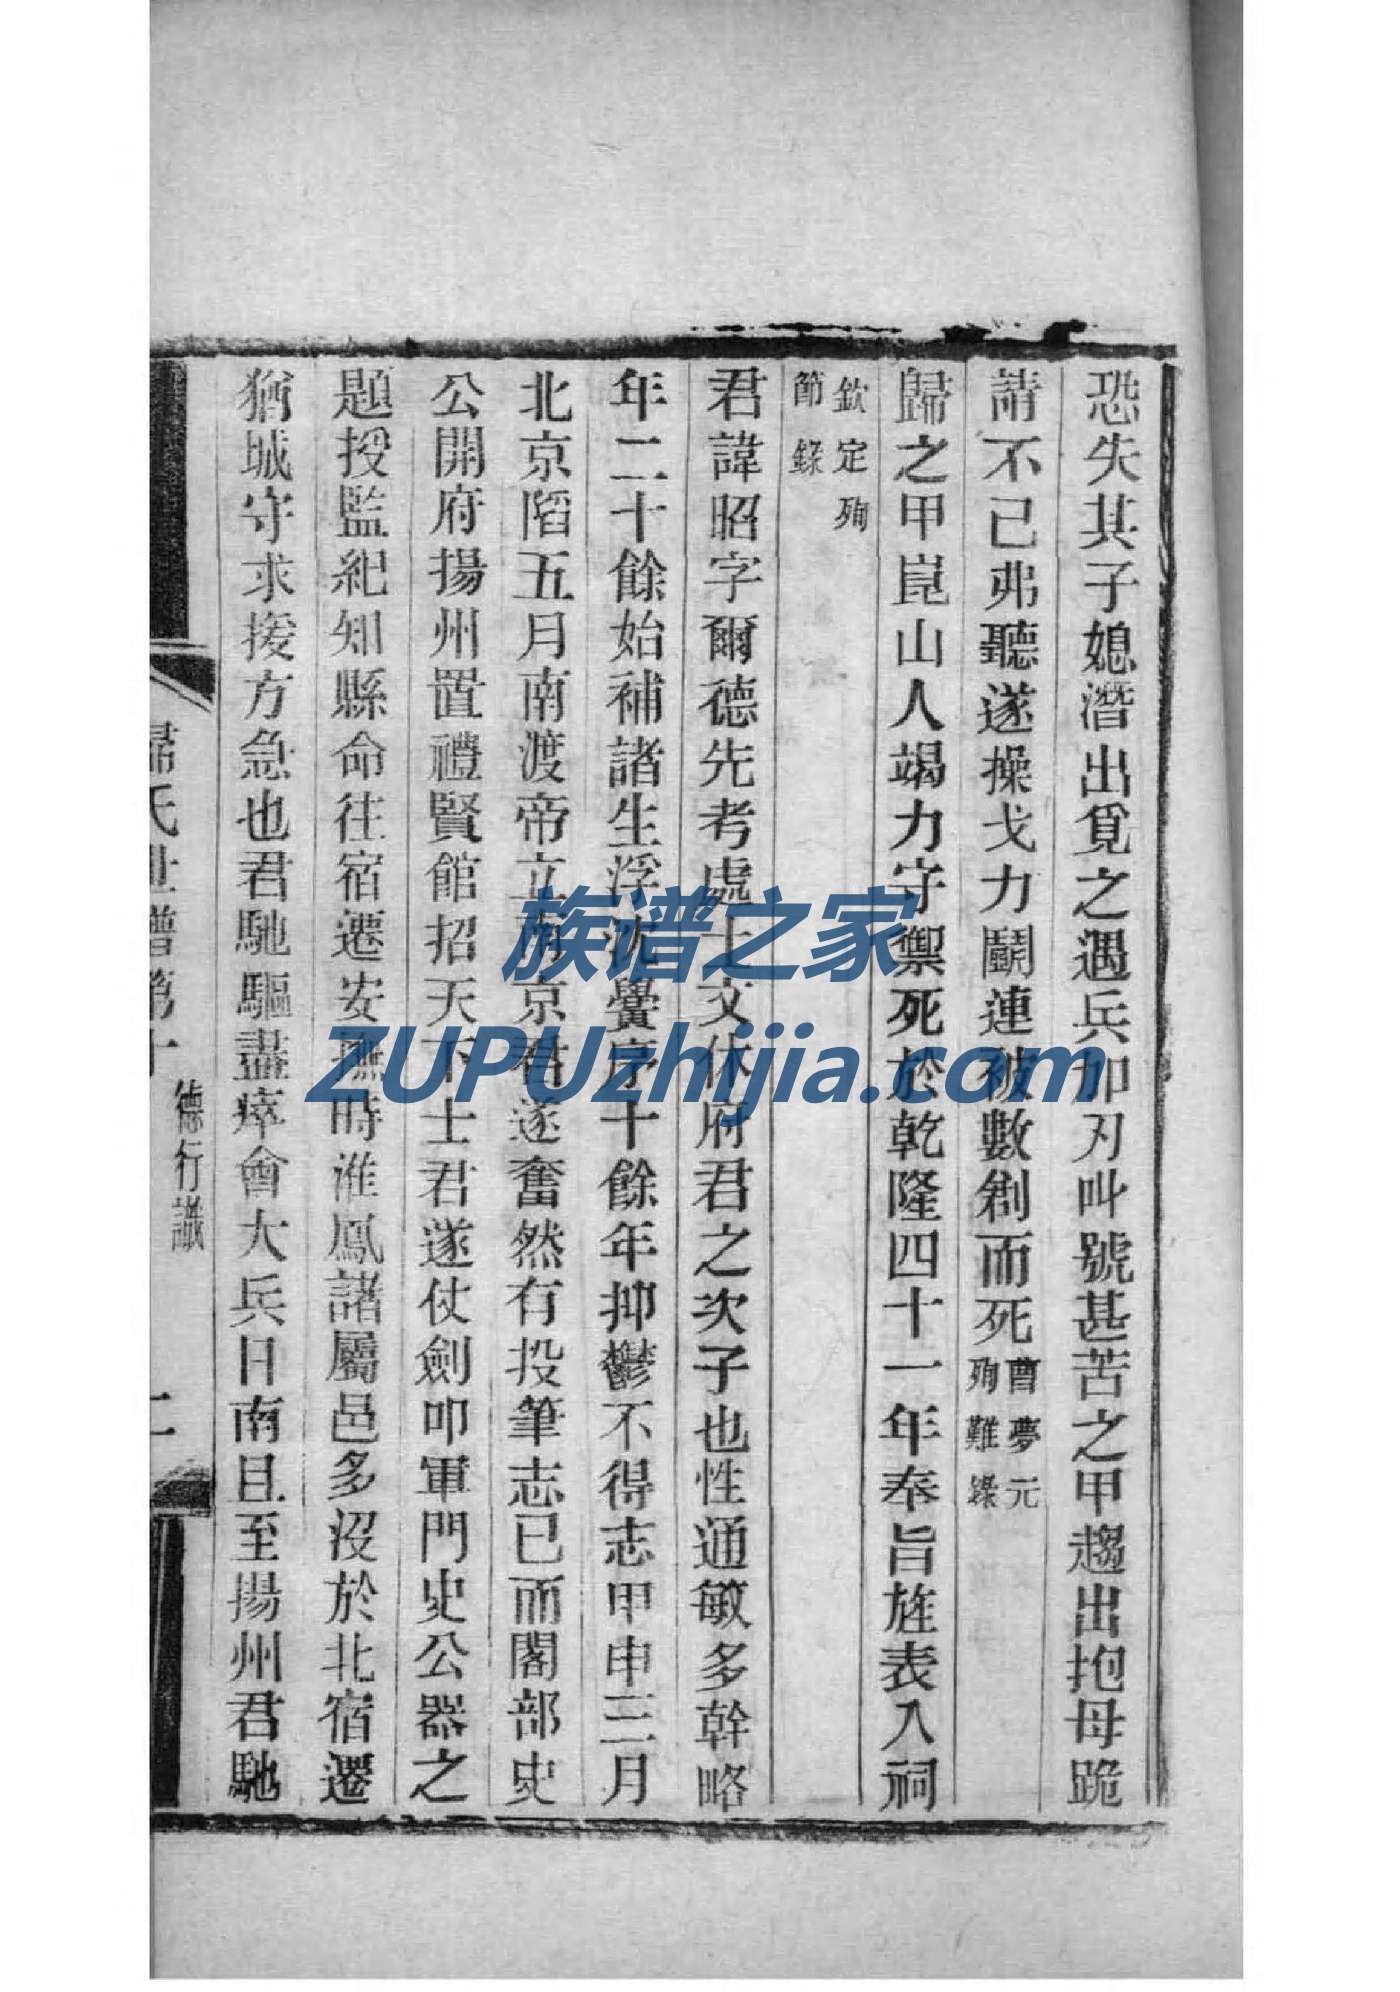 恐失其子媳潛出覓之遇兵加刃叫號甚苦之甲趨出抱母跪
請不已弗聽遂操戈力鬭連被數創而死曹夢元
殉難錄
歸之甲崑山人竭力守禦死於乾隆四十一年奉旨旌表入祠
欽定殉
節錄
君諱昭字爾德先考處士文休府君之次子也性通敏多幹略
年二十餘始補諸生浮沈黌序十餘年抑鬱不得志甲申三月
北京陷五月南渡帝立南京君遂奮然有投筆志已而閣部史
公開府揚州置禮賢館招天下士君遂仗劍叩軍門史公器之
題授監紀知縣命往宿遷安撫時淮鳳諸屬邑多沒於北宿遷
猶城守求援方急也君馳驅盡瘁會大兵日南且至揚州君馳
歸氏世譜第十
德行識
二
族谱之家
ZUPUzhijia.com